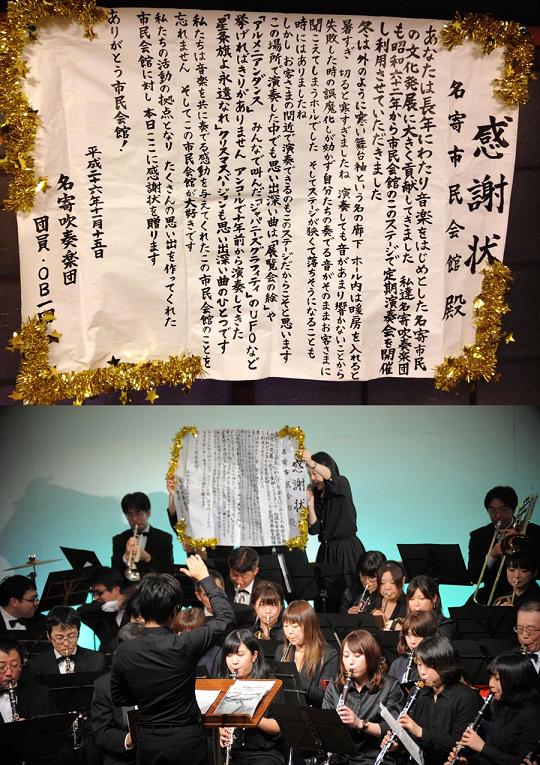 感謝状
名寄市民会館 殿
あなたは長年にわたり音楽をはじめとした名寄市民
の文化発展に大きく貢献してきました 私達名寄吹奏楽団
も昭和六十二年から市民会館のこのステージで定期演奏会を開催
し利用させていただきました
冬は外のように寒い舞台袖という名の廊下 ホール内は暖房を入れると
暑すぎ 切ると寒すぎましたね 演奏しても音があまり響かないことから
失敗した時の誤魔化しが効かず自分たちの奏でる音がそのままお客さまに
聞こえてしまうホールでした そしてステージが狭くて落ちそうになることも
時にはありましたね
しかし お客さまの間近で演奏できるのもこのステージだからこそと思います
この場所で演奏した中でも思い出深い曲は「展覧会の絵」や
「アルメニアンダンス」 みんなで叫んだ「ジャパニーズグラフィティ」のUFOなど
挙げればきりがありません アンコールで十年前から演奏してきた
「星条旗よ永遠なれ」クリスマスバージョンも思い出深い曲のひとつです
私たちは音楽を共に奏でる感動を与えてくれたこの市民会館のことを
忘れません そしてこの市民会館が大好きです
私たちの活動の拠点となり たくさんの思い出を作ってくれた
市民会館に対し 本日ここに感謝状を贈ります
ありがとう市民会館!
平成二十六年十二月十五日
名寄吹奏楽団
団員・OB一同
感謝状
名寄市民会館 殿